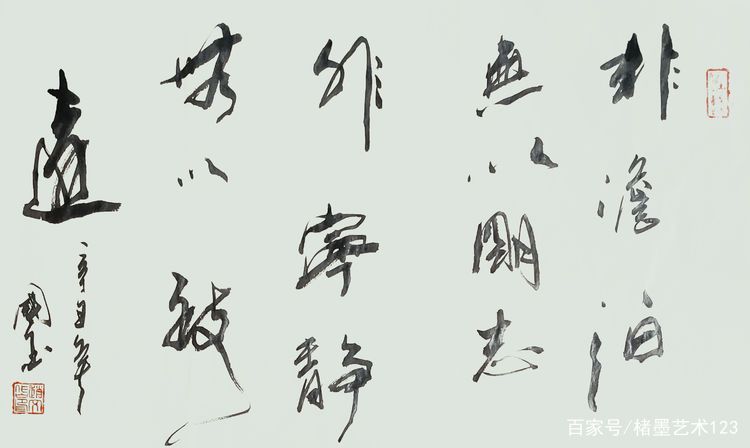 非澹泊
無以明志
非寧靜
無以致
遠
辛丑年
國玉
百家号/楮墨艺术123